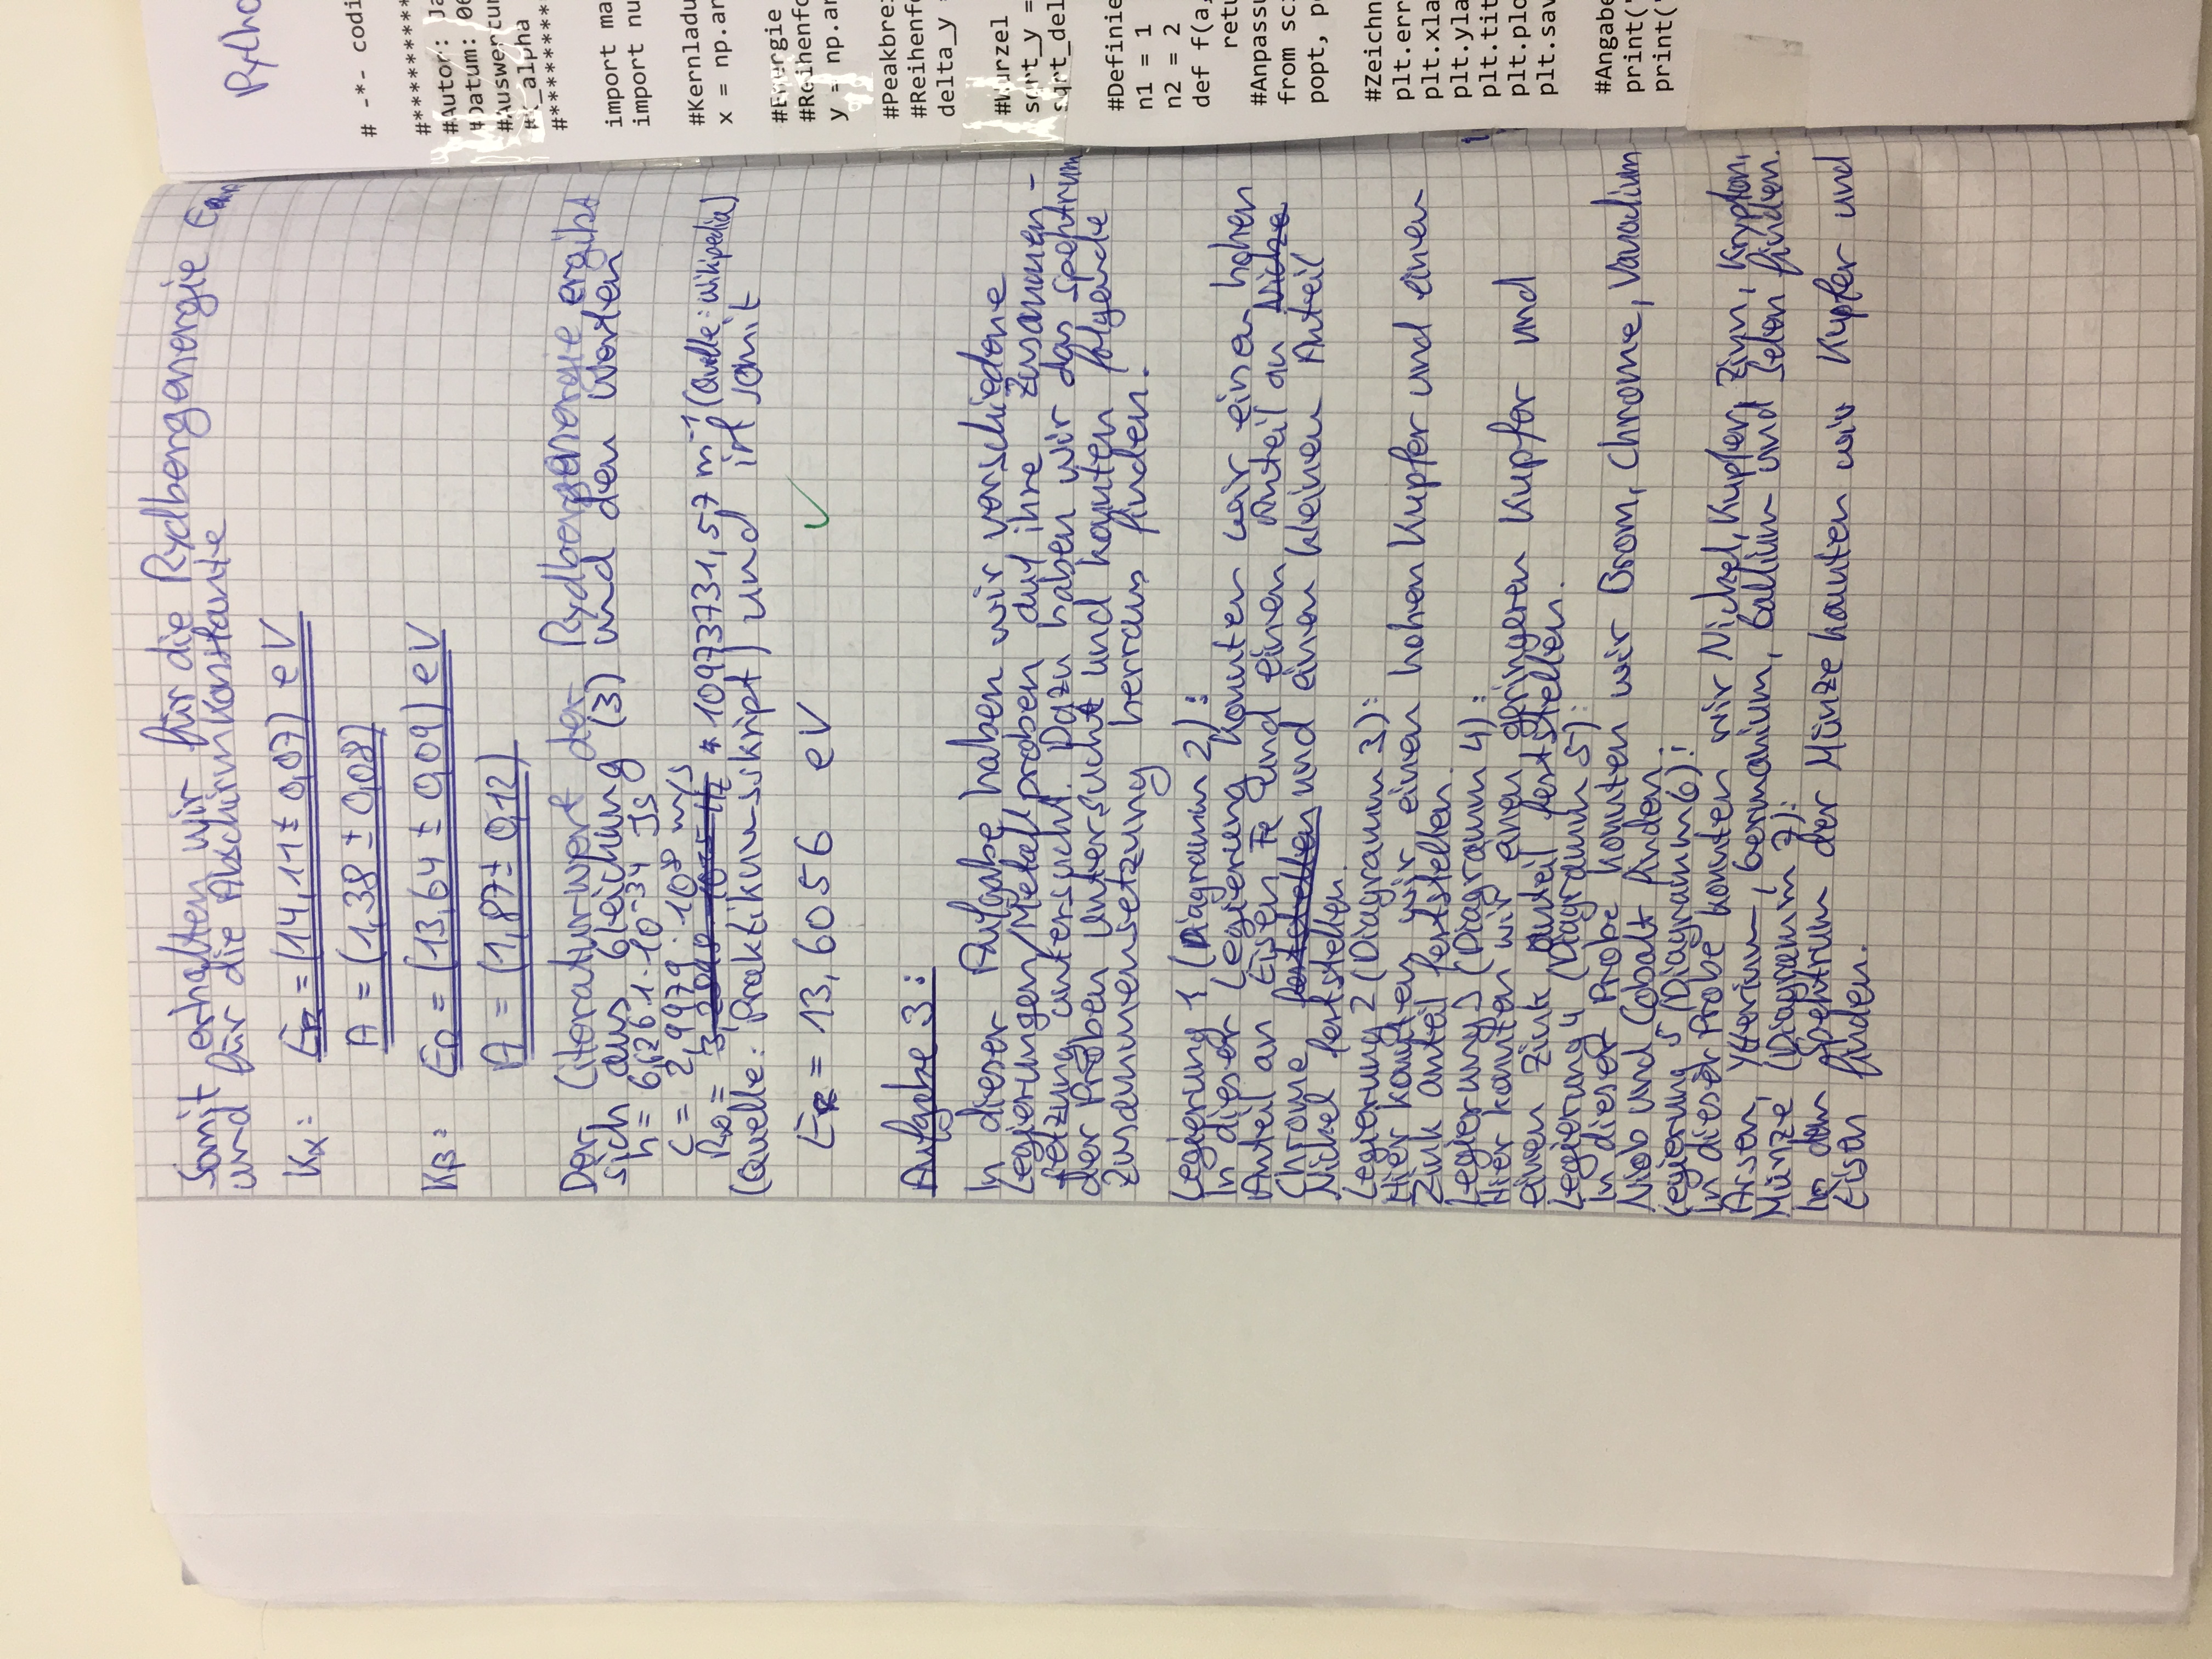 Somit erhalten wir für die Rydbergenergie
und für die Abschirmkonstante
Kα: ER = (14,11 ± 0,07) eV
A = (1,38 ± 0,08)
Kβ: ER = (13,64 ± 0,09) eV
A = (1,87 ± 0,12)
Der Literaturwert der Rydbergenergie ergibt
sich aus Gleichung (3) und den Werten
h = 6,6261·10⁻³⁴ Js
c = 2,9979·10⁸ m/s
R∞ = 10973731,57 m⁻¹ (Quelle: Wikipedia)
(Quelle: Praktikumsskript) und ist somit
ER = 13,6056 eV ✓
Aufgabe 3:
In dieser Aufgabe haben wir verschiedene
Legierungen/Metallproben auf ihre Zusammen-
setzung untersucht. Dazu haben wir das Spektrum
der Proben untersucht und konnten folgende
Zusammensetzung herraus finden:
Legierung 1 (Diagramm 2):
In dieser Legierung konnten wir einen hohen
Anteil an Eisen Fe und einen Anteil an
Chrome feststellen und einen kleinen Anteil
Nickel feststellen.
Legierung 2 (Diagramm 3):
Hier konnten wir einen hohen Kupfer und einen
Zink anteil feststellen.
Legierung 3 (Diagramm 4):
Hier konnten wir einen geringeren Kupfer und
einen Zink anteil feststellen.
Legierung 4 (Diagramm 5):
In dieser Probe konnten wir Brom, Chrome, Vanadium
Niob und Cobalt finden.
Legierung 5 (Diagramm 6):
In dieser Probe konnten wir Nickel, Kupfer, Zinn, Krypton,
Arsen, Ytterium, Germanium, Gallium und Selen finden.
Münze (Diagramm 7):
In dem Spektrum der Münze konnten wir Kupfer und
Eisen finden.
Pytho
# -*- codi
#*********
#Autor: Ja
#Datum: 06
#Auswertun
#K_alpha
#*********
import ma
import nu
#Kernladu
x = np.ar
#Energie
#Reihenfo
y = np.ar
#Peakbrei
#Reihenfo
delta_y =
#Wurzel
sqrt_y =
sqrt_del
#Definie
n1 = 1
n2 = 2
def f(a,
retu
#Anpassu
from sci
popt, po
#Zeichn
plt.err
plt.xla
plt.yla
plt.tit
plt.plo
plt.sav
#Angabe
print("
print("